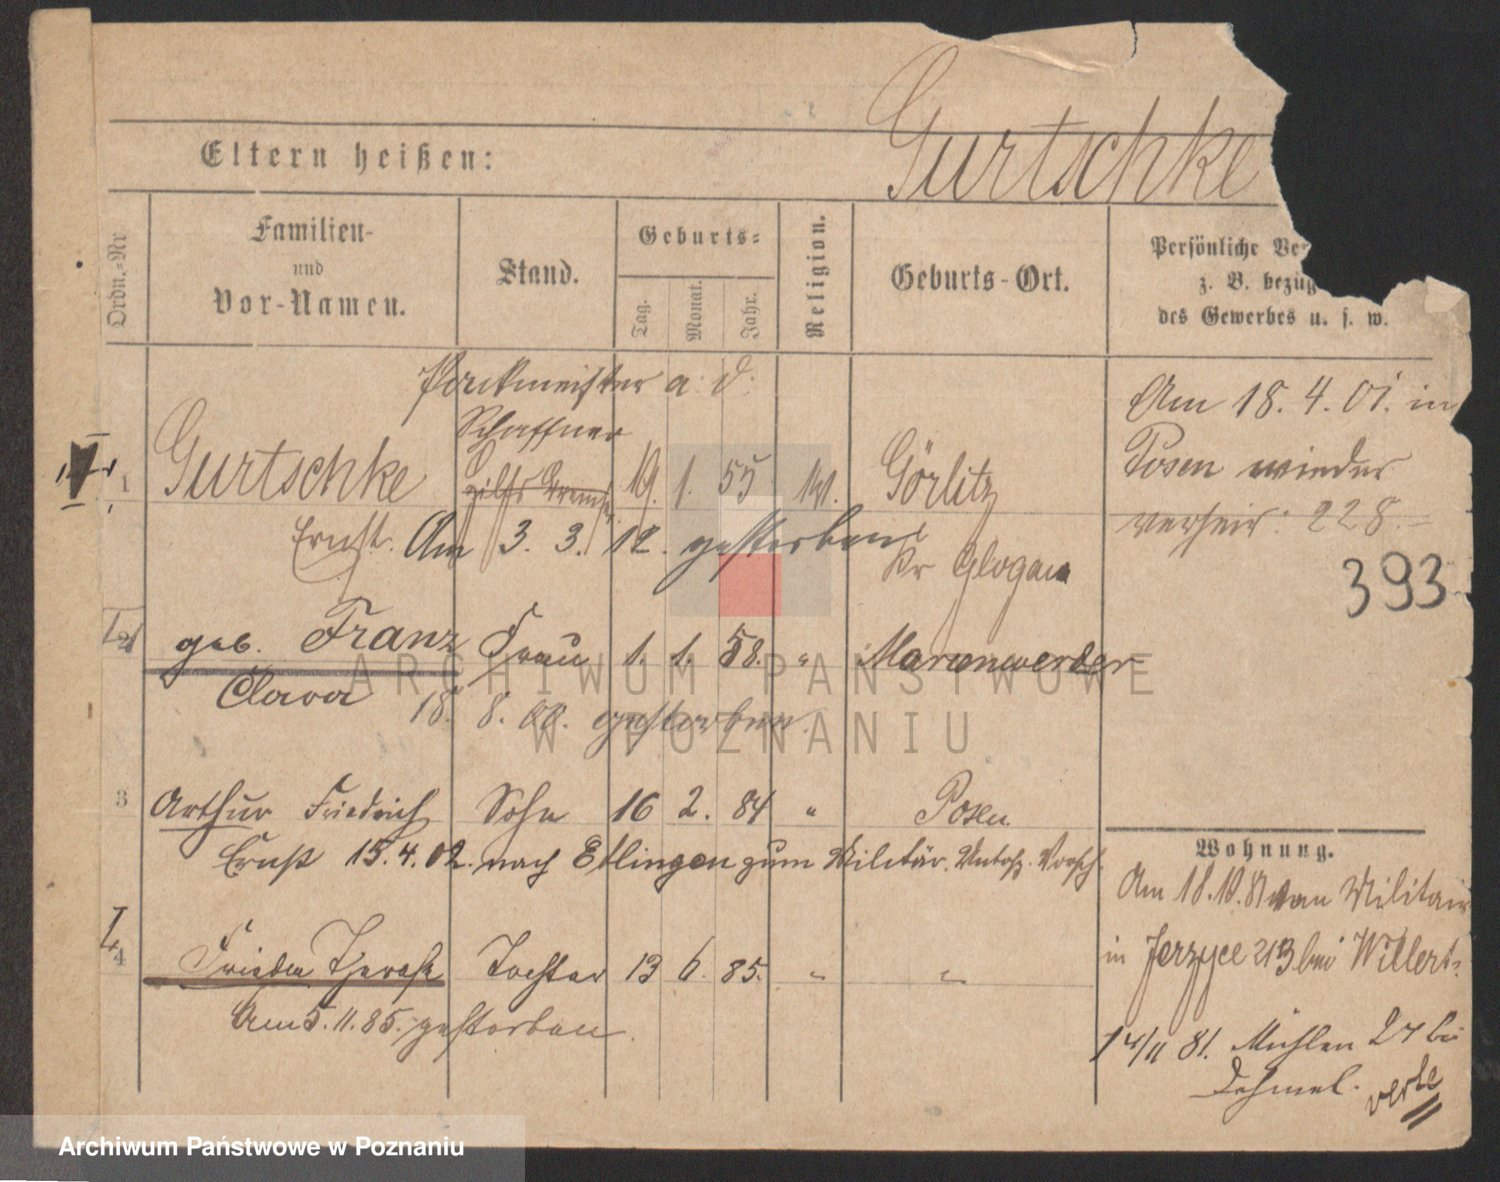 Gurtschke
Eltern heißen:
Ordn.-Nr
Familien-
und
Vor-Namen.
Stand.
Geburts-
Tag.
Monat.
Jahr.
Religion.
Geburts-Ort.
Persönliche
z. B.
des Gewerbes u. s. w.
Packmeister a. D.
Schaffner
1 Gurtschke 19. 1. 55 Görlitz
Ernst. Am 3. 3. 12. gestorben
Kr Glogau
Am 18. 4. 01. in
Posen wieder
verheir: 228.
393
2 geb. Franz Frau 1. 1. 58. " Marienwerder
Clara 18. 8. 00. gestorben.
3 Arthur Friedrich Sohn 16 2. 84 " Posen
Ernst 15. 4. 02. nach Etlingen zum Militär. Untoff. Vorsch.
4 Frieda Therese Tochter 13 6. 85. " "
Am 5. 11. 85. gestorben.
Wohnung.
Am 18. 10. 81 von Militair
in Jerzyce 213 bei Willert
14/11 81. Mühlen 27 bei
Dehmel.
verte
ARCHIWUM PAŃSTWOWE
W POZNANIU
Archiwum Państwowe w Poznaniu